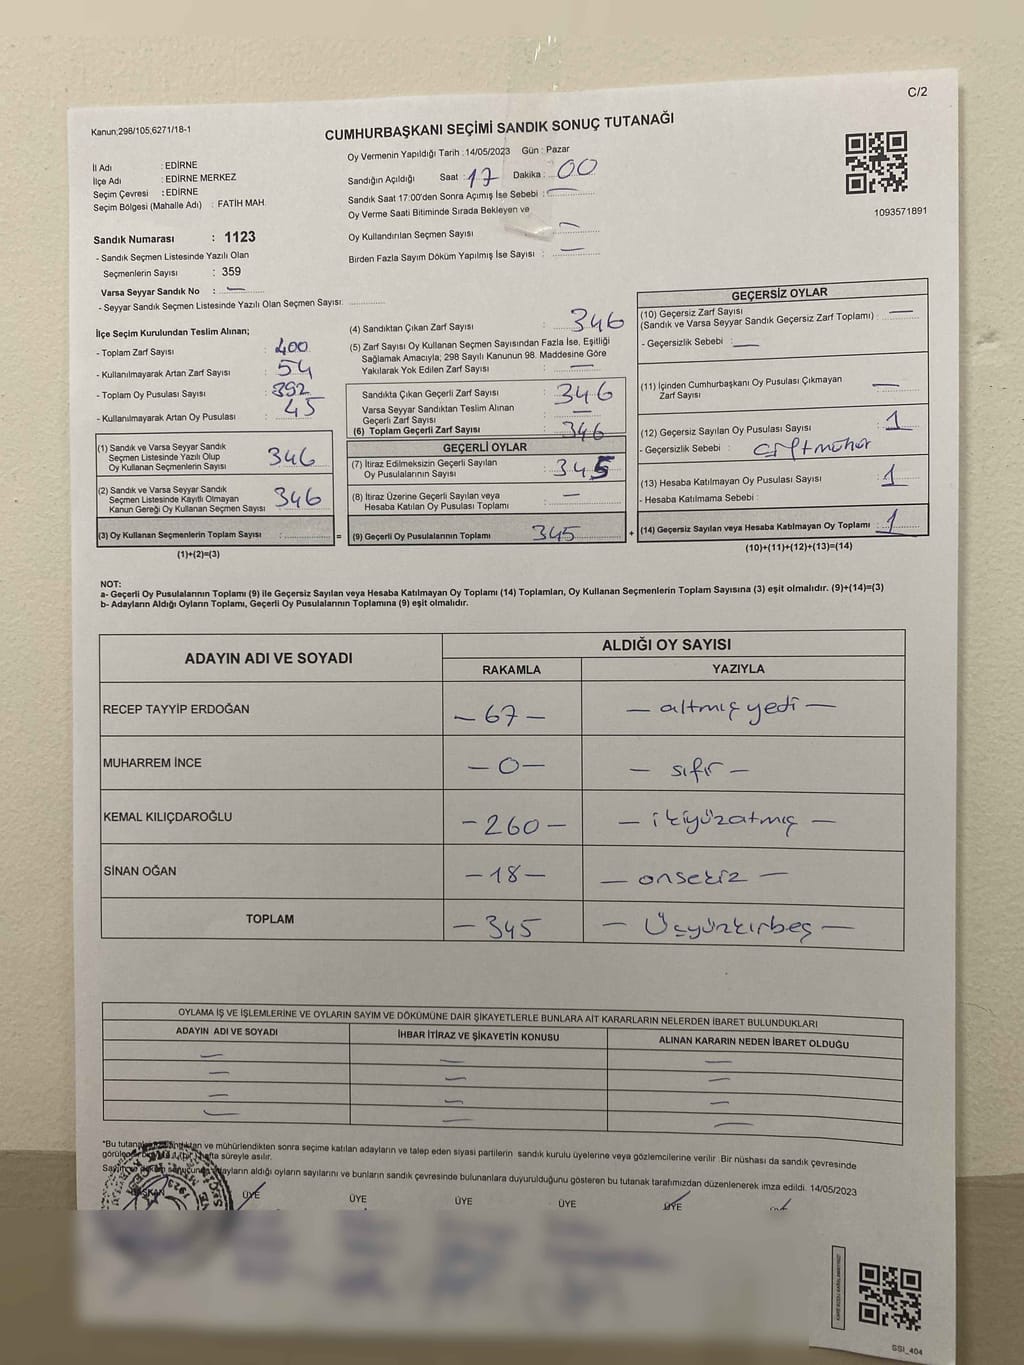 C/2
Kanun;298/105,6271/18-1
CUMHURBAŞKANI SEÇİMİ SANDIK SONUÇ TUTANAĞI
İl Adı : EDİRNE
İlçe Adı : EDİRNE MERKEZ
Seçim Çevresi : EDİRNE
Seçim Bölgesi (Mahalle Adı) : FATİH MAH.
Oy Vermenin Yapıldığı Tarih : 14/05/2023 Gün : Pazar
Sandığın Açıldığı Saat : 17 Dakika : 00
Sandık Saat 17:00'den Sonra Açımış İse Sebebi : —
Oy Verme Saati Bitiminde Sırada Bekleyen ve
Oy Kullandırılan Seçmen Sayısı —
Birden Fazla Sayım Döküm Yapılmış İse Sayısı : —
1093571891
Sandık Numarası : 1123
- Sandık Seçmen Listesinde Yazılı Olan
Seçmenlerin Sayısı : 359
Varsa Seyyar Sandık No : —
- Seyyar Sandık Seçmen Listesinde Yazılı Olan Seçmen Sayısı:
İlçe Seçim Kurulundan Teslim Alınan;
- Toplam Zarf Sayısı : 400
- Kullanılmayarak Artan Zarf Sayısı : 54
- Toplam Oy Pusulası Sayısı : 392
- Kullanılmayarak Artan Oy Pusulası : 45
(1) Sandık ve Varsa Seyyar Sandık
Seçmen Listesinde Yazılı Olup
Oy Kullanan Seçmenlerin Sayısı : 346
(2) Sandık ve Varsa Seyyar Sandık
Seçmen Listesinde Kayıtlı Olmayan
Kanun Gereği Oy Kullanan Seçmen Sayısı : 346
(3) Oy Kullanan Seçmenlerin Toplam Sayısı :
(1)+(2)=(3)
(4) Sandıktan Çıkan Zarf Sayısı : 346
(5) Zarf Sayısı Oy Kullanan Seçmen Sayısından Fazla İse, Eşitliği
Sağlamak Amacıyla; 298 Sayılı Kanunun 98. Maddesine Göre
Yakılarak Yok Edilen Zarf Sayısı : —
Sandıkta Çıkan Geçerli Zarf Sayısı : 346
Varsa Seyyar Sandıktan Teslim Alınan
Geçerli Zarf Sayısı : —
(6) Toplam Geçerli Zarf Sayısı : 346
GEÇERLİ OYLAR
(7) İtiraz Edilmeksizin Geçerli Sayılan
Oy Pusulalarının Sayısı : 345
(8) İtiraz Üzerine Geçerli Sayılan veya
Hesaba Katılan Oy Pusulası Toplamı : —
= (9) Geçerli Oy Pusulalarının Toplamı : 345 +
GEÇERSİZ OYLAR
(10) Geçersiz Zarf Sayısı
(Sandık ve Varsa Seyyar Sandık Geçersiz Zarf Toplamı) : —
- Geçersizlik Sebebi : —
(11) İçinden Cumhurbaşkanı Oy Pusulası Çıkmayan
Zarf Sayısı : —
(12) Geçersiz Sayılan Oy Pusulası Sayısı : 1
- Geçersizlik Sebebi : çift mühür
(13) Hesaba Katılmayan Oy Pusulası Sayısı : 1
- Hesaba Katılmama Sebebi :
(14) Geçersiz Sayılan veya Hesaba Katılmayan Oy Toplamı : 1
(10)+(11)+(12)+(13)=(14)
NOT:
a- Geçerli Oy Pusulalarının Toplamı (9) ile Geçersiz Sayılan veya Hesaba Katılmayan Oy Toplamı (14) Toplamları, Oy Kullanan Seçmenlerin Toplam Sayısına (3) eşit olmalıdır. (9)+(14)=(3)
b- Adayların Aldığı Oyların Toplamı, Geçerli Oy Pusulalarının Toplamına (9) eşit olmalıdır.
ADAYIN ADI VE SOYADI ALDIĞI OY SAYISI
RAKAMLA YAZIYLA
RECEP TAYYİP ERDOĞAN — 67 — — altmış yedi —
MUHARREM İNCE — 0 — — sıfır —
KEMAL KILIÇDAROĞLU — 260 — — ikiyüzatmış —
SİNAN OĞAN — 18 — — onsekiz —
TOPLAM — 345 — Üçyüzkırbeş —
OYLAMA İŞ VE İŞLEMLERİNE VE OYLARIN SAYIM VE DÖKÜMÜNE DAİR ŞİKAYETLERLE BUNLARA AİT KARARLARIN NELERDEN İBARET BULUNDUKLARI
ADAYIN ADI VE SOYADI İHBAR İTİRAZ VE ŞİKAYETİN KONUSU ALINAN KARARIN NEDEN İBARET OLDUĞU
— — —
— — —
— — —
— — —
*Bu tutanak ve mühürlendikten sonra seçime katılan adayların ve talep eden siyasi partilerin sandık kurulu üyelerine veya gözlemcilerine verilir Bir nüshası da sandık çevresinde
hafta süreyle asılır.
adayların aldığı oyların sayılarını ve bunların sandık çevresinde bulunanlara duyurulduğunu gösteren bu tutanak tarafımızdan düzenlenerek imza edildi. 14/05/2023
BAŞKAN ÜYE ÜYE ÜYE ÜYE ÜYE
SSI_404